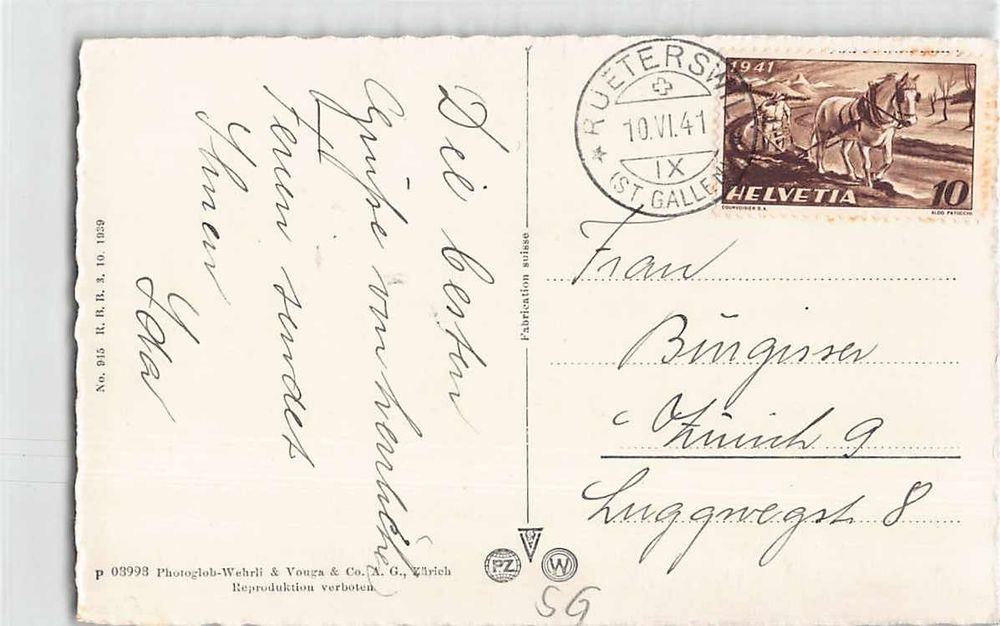 Die besten
Grüsse von herrlichen
Ferien sendet
Ihnen
Ida
No. 945 R. B. B. 3. 10. 1939
Fabrication suisse
RUETERSWIL
10.VI.41
IX
(ST. GALLEN)
1941
HELVETIA 10
COURVOISIER S.A. ALDO PATOCCHI
Frau
Bürgisser
Zürich 9
Luggwegst. 8
P 03993 Photoglob-Wehrli & Vouga & Co. A. G., Zürich
Reproduktion verboten
PZ
W
SG